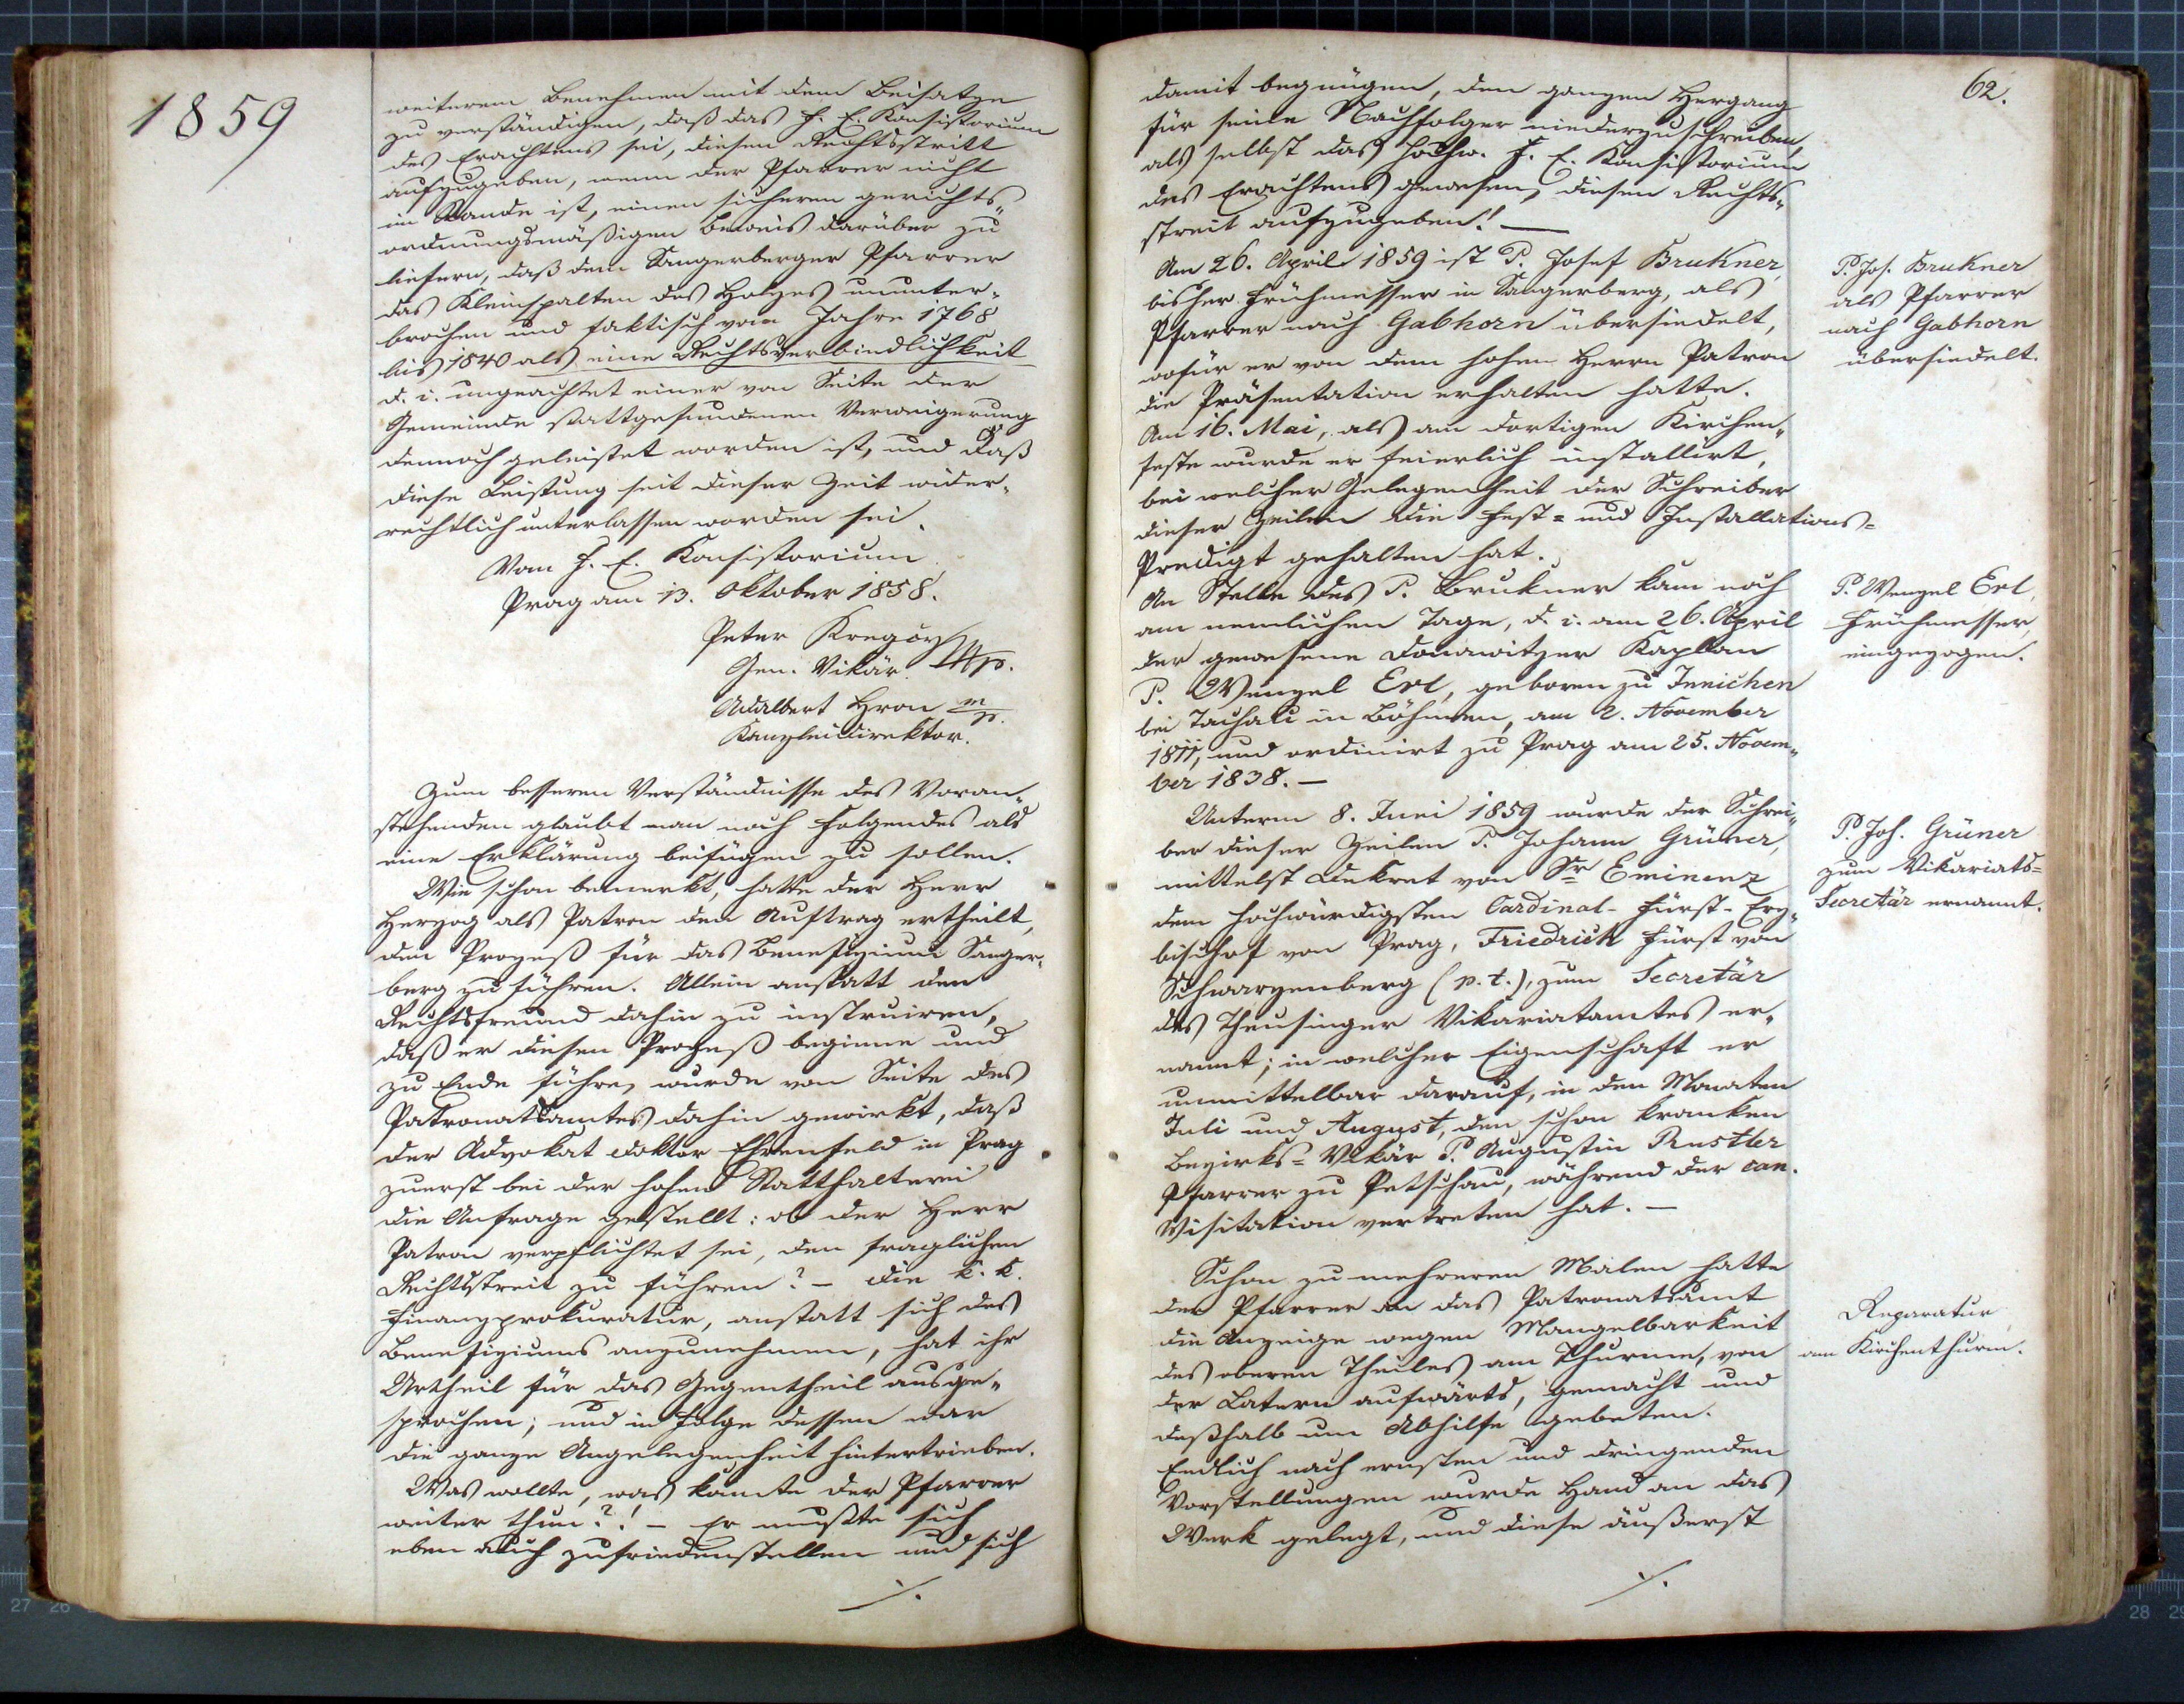 1859
weiterem Benehmen mit dem Beisatze
zu verständigen, daß das F. E. Konsistorium
des Erachtens sei, diesen Rechtsstritt
aufzugeben, wenn der Pfarrer nicht
im Stande ist, einen sicheren gerichts„
ordnungsmäßigen Beweis darüber zu
liefern, daß dem Sangerberger Pfarrer
das Kleinspalten des Holzes ununter„
brochen und faktisch vom Jahre 1768
bis 1840 als eine Rechtsverbindlichkeit
d. i. ungeachtet einer von Seite der
Gemeinde stattgefundenen Verweigerung
dennoch geleistet worden ist, und daß
diese Leistung seit dieser Zeit wider„
rechtlich unterlassen worden sei.
Vom F. E. Konsistorium
Prag am 13. Oktober 1858.
Peter Krejčy
Gen. Vikär. Mp.
Adalbert Hron m/p.
Kanzleidirektor.
Zum besseren Verständnisse des Voran„
stehenden glaubt man noch Folgendes als
eine Erklärung beifügen zu sollen.
Wie schon bemerkt, hatte der Herr
Herzog als Patron den Auftrag ertheilt,
den Prozeß für das Benefizium Sanger„
berg zu führen. Allein anstatt den
Rechtsfreund dahin zu instruiren,
daß er diesen Prozeß beginne und
zu Ende führe, wurde von Seite des
Patronatsamtes dahin gewirkt, daß
der Advokat Doktor Ehrenfeld in Prag
zuerst bei der hohen Statthalterei
die Anfrage gestellt: ob der Herr
Patron verpflichtet sei, den fraglichen
Rechtsstreit zu führen? – Die k. k.
Finanzprokuratur, anstatt sich des
Benefiziums anzunehmen, hat ihr
Urtheil für das Gegentheil ausge„
sprochen; und in Folge dessen war
die ganze Angelegenheit hintertrieben.
Was wollte, was konnte der Pfarrer
weiter thun?! – Er mußte sich
eben auch zufriedenstellen und sich
./.
62.
damit begnügen, den ganzen Hergang
für seine Nachfolger niederzuschreiben,
als selbst das hochw. F. E. Konsistorium
des Erachtens gewesen, diesen Rechts„
streit aufzugeben! —
Am 26. April 1859 ist P. Josef Brukner,
bisher Frühmesser in Sangerberg, als
Pfarrer nach Gabhorn übersiedelt,
wofür er von dem hohen Herrn Patron
die Präsentation erhalten hatte.
Am 16. Mai, als am dortigen Kirchen„
feste wurde er feierlich installirt,
bei welcher Gelegenheit der Schreiber
dieser Zeilen die Fest= und Installations=
Predigt gehalten hat.
P. Jos. Brukner
als Pfarrer
nach Gabhorn
übersiedelt.
An Stelle des P. Brukner kam noch
am nemlichen Tage, d. i. am 26. April
der gewesene Donawitzer Kaplan
P. Wenzel Erl, geboren zu Innichen
bei Tachau in Böhmen, am 2. November
1811, und ordinirt zu Prag am 25. Novem„
ber 1838. —
P. Wenzel Erl,
Frühmesser,
eingezogen.
Unterm 8. Juni 1859 wurde der Schrei„
ber dieser Zeilen P. Johann Grüner,
mittelst Dekret von Sr Eminenz
dem hochwürdigsten Cardinal- Fürst- Erz„
bischof von Prag, Friedrich Fürst von
Schwarzenberg (p. t.), zum Secretär
des Theusinger Vikariatamtes er„
nannt; in welcher Eigenschaft er
unmittelbar darauf, in den Monaten
Juli und August, den schon kranken
Bezirks= Vikär P. Augustin Rustler
Pfarrer zu Petschau, während der can.
Visitation vertreten hat. —
P. Joh. Grüner
zum Vikariats=
Secretär ernannt.
Schon zu mehreren Malen hatte
der Pfarrer an das Patronatsamt
die Anzeige wegen Mangelbarkeit
des oberen Theiles am Thurme, von
der Latern aufwärts, gemacht und
deßhalb um Abhilfe gebeten.
Endlich nach ernsten und dringenden
Vorstellungen wurde Hand an das
Werk gelegt, und diese äußerst
./.
Reparatur
am Kirchenthurm.